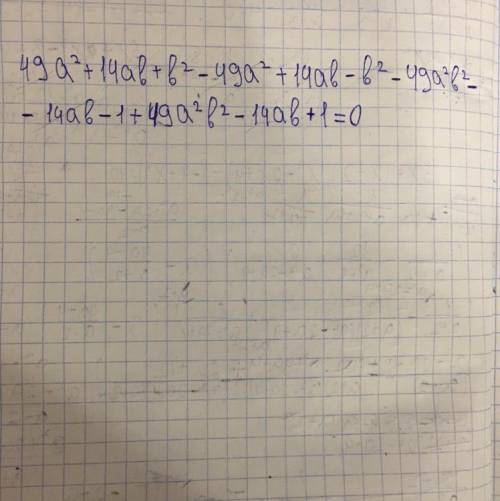 49a²+14ab+b²-49a²+14ab-b²-49a²b²-
-14ab-1+49a²b²-14ab+1=0